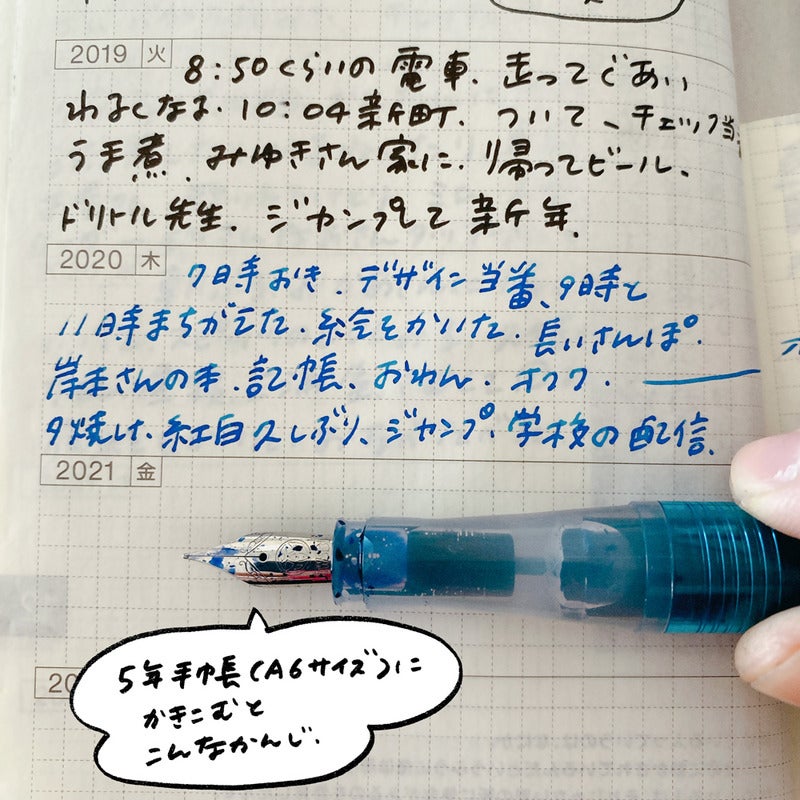 2019 火
8:50くらいの電車．走ってぐあい
わるくなる．10:04新町．ついて、チェック当
うま煮．みゆきさん家に．帰ってビール、
ドリトル先生．ジャンプして新年．
2020 木
7時おき．デザイン当番、9時と
11時まちがえた．絵をかいた．長いさんぽ．
岸本さんの本．記帳、おわん．オフク．
夕焼け．紅白久しぶり、ジャンプ．学校の配信．
2021 金
20
5年手帳(A6サイズ)に
かきこむと
こんなかんじ．